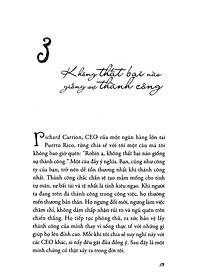 3
Không thất bại nào
giống sự thành công
Richard Carrion, CEO của một ngân hàng lớn tại
Puerto Rico, từng chia sẻ với tôi một câu mà tôi
không bao giờ quên: "Robin ạ, không thất bại nào giống
sự thành công." Một câu đầy ý nghĩa. Bạn, cũng như công
ty của bạn, trở nên dễ tổn thương nhất khi thành công
nhất. Thành công chắc chắn sẽ tạo mầm mống cho tính
tự mãn, sự bất tài và tệ nhất là tính kiêu ngạo. Khi người
ta đang trên đà thành công trong công việc, họ thường
mến thương bản thân. Họ ngưng đổi mới, ngưng làm việc
chăm chỉ, không dám chấp nhận rủi ro và ngủ quên trên
chiến thắng. Họ tiếp tục phòng thủ, ra sức bảo vệ thành
tựu của mình thay vì sống thực tế với những gì
giúp họ lên đỉnh cao. Mỗi khi tôi chia sẻ suy nghĩ này với
các CEO khác, ai nấy đều gật đầu đồng ý. Sau đây là một
minh chứng có thật xảy ra trong đời tôi.